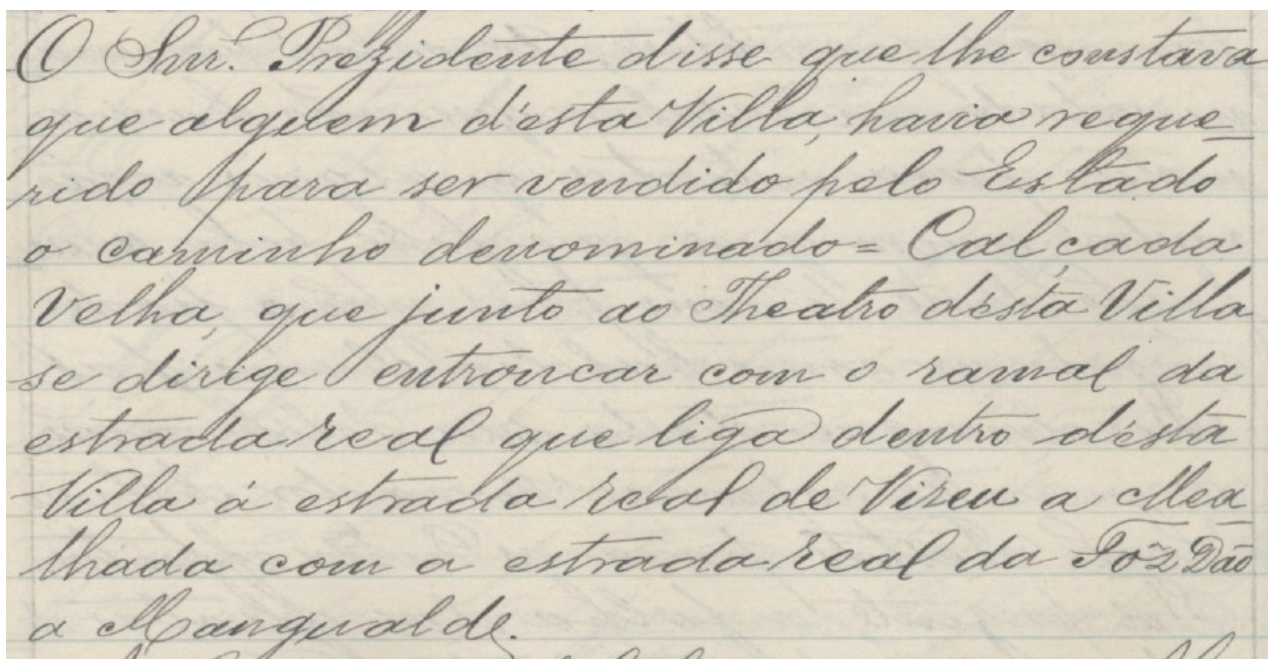 O Snr. Prezidente disse que lhe constava
que alguem d'esta Villa, havia reque_
rido para ser vendido pelo Estado
o caminho denominado = Calçada
Velha, que junto ao Theatro d'esta Villa
se dirige entroncar com o ramal da
estrada real que liga dentro d'esta
Villa á estrada real de Vizeu a Mea_
lhada com a estrada real da Foz Dão
a Mangualde.